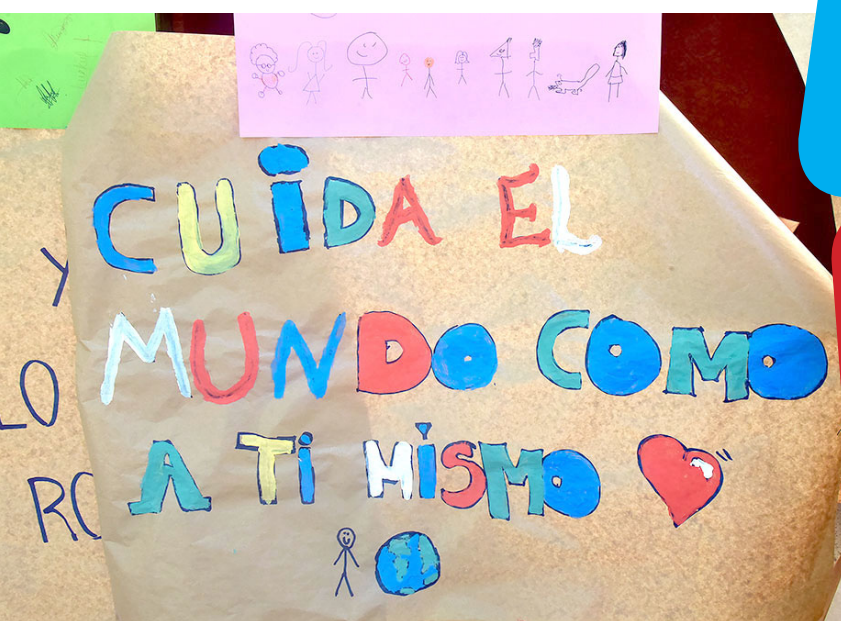 CUiDA EL
MUNDO COMO
A Ti MiSMO
Y
LO